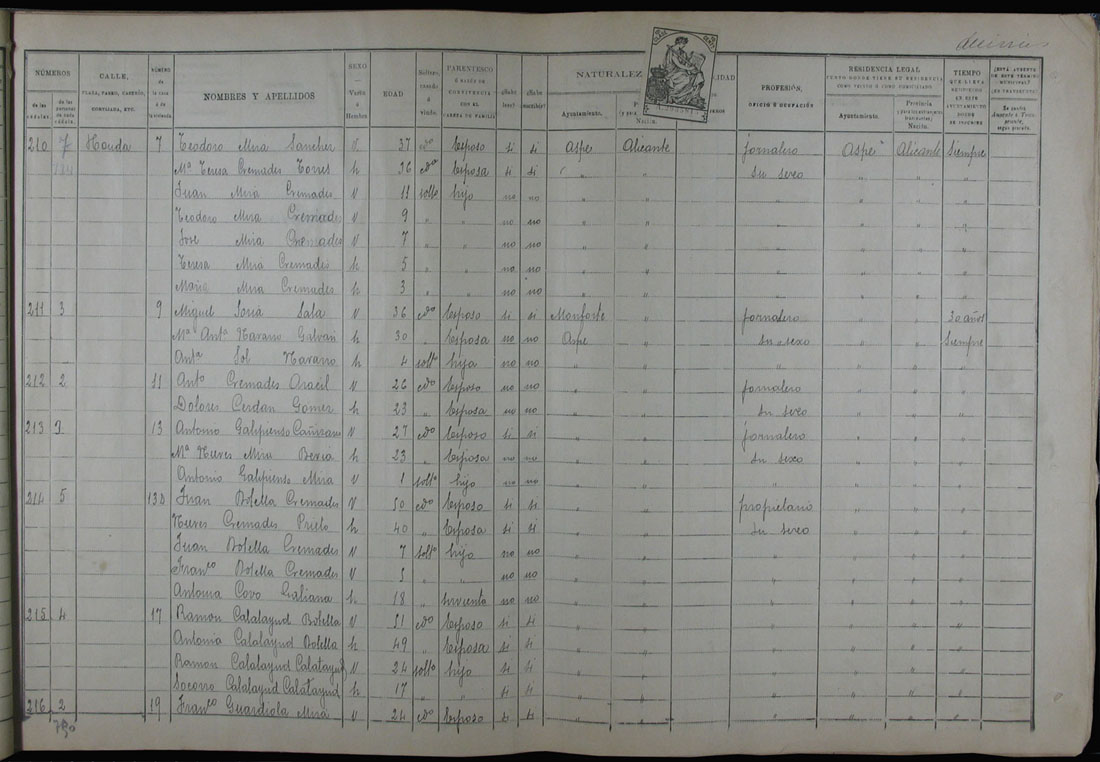 NÚMEROS
de las cédulas.
CALLE,
PLAZA, PASEO, CASERÍO, CORTIJADA, ETC.
NÚMERO de la casa
NOMBRES Y APELLIDOS
SEXO Varón ó Hembra
EDAD
Soltero, casado ó viudo.
PARENTESCO
Ó RAZÓN DE CONVIVENCIA CON EL CABEZA DE FAMILIA
¿Sabe leer?
¿Sabe escribir?
NATURALEZ
Ayuntamiento.
PROFESIÓN,
OFICIO Ó OCUPACIÓN
RESIDENCIA LEGAL
Ayuntamiento.
Provincia
TIEMPO
QUE LLEVA
210 7 Honda 7 Teodoro Mira Sanchez V 37 cdo Esposo si si Aspe Alicante jornalero Aspe Alicante Siempre
Mª Teresa Cremades Torres h 36 cdo Esposa si si " " su sexo " " "
Juan Mira Cremades V 11 solto hijo no no " " " " "
Teodoro Mira Cremades V 9 " " no no " " " " "
José Mira Cremades V 7 " " no no " " " " "
Teresa Mira Cremades h 5 " " no no " " " " "
Maria Mira Cremades h 3 " " no no " " " " "
211 3 9 Miguel Soria Sala V 36 cdo Esposo si si Monforte " jornalero " " 30 años
Mª Antª Navarro Galvañ h 30 " Esposa no no Aspe " su sexo " " Siempre
Antª Sol Navarro h 4 solt hija no no " " " " "
212 2 11 Antº Cremades Oracil V 26 cdo Esposo no no " " jornalero " " "
Dolores Cerdan Gomez h 23 " Esposa no no " " su sexo " " "
213 3 13 Antonio Galipienso Cañizares V 27 cdo Esposo si si " " jornalero " " "
Mª Nieves Mira Beria h 23 " Esposa no no " " su sexo " " "
Antonio Galipienso Mira V 1 solto hijo no no " " " " "
214 5 13 D Juan Botella Cremades V 50 cdo Esposo si si " " propietario " " "
Nieves Cremades Prieto h 40 " Esposa si si " " su sexo " " "
Juan Botella Cremades V 7 solto hijo no no " " " " "
Franco Botella Cremades V 5 " " no no " " " " "
Antonia Covo Galiana h 18 " sirvienta no no " " " " "
215 4 17 Ramon Calatayud Botella V 51 cdo Esposo si si " " " " "
Antonia Calatayud Botella h 49 " Esposa si si " " " " "
Ramon Calatayud Calatayud V 24 solto hijo si si " " " " "
Socorro Calatayud Calatayud h 17 " " si si " " " " "
216 2 19 Franco Guardiola Mira V 24 cdo Esposo si si " " " " "
750